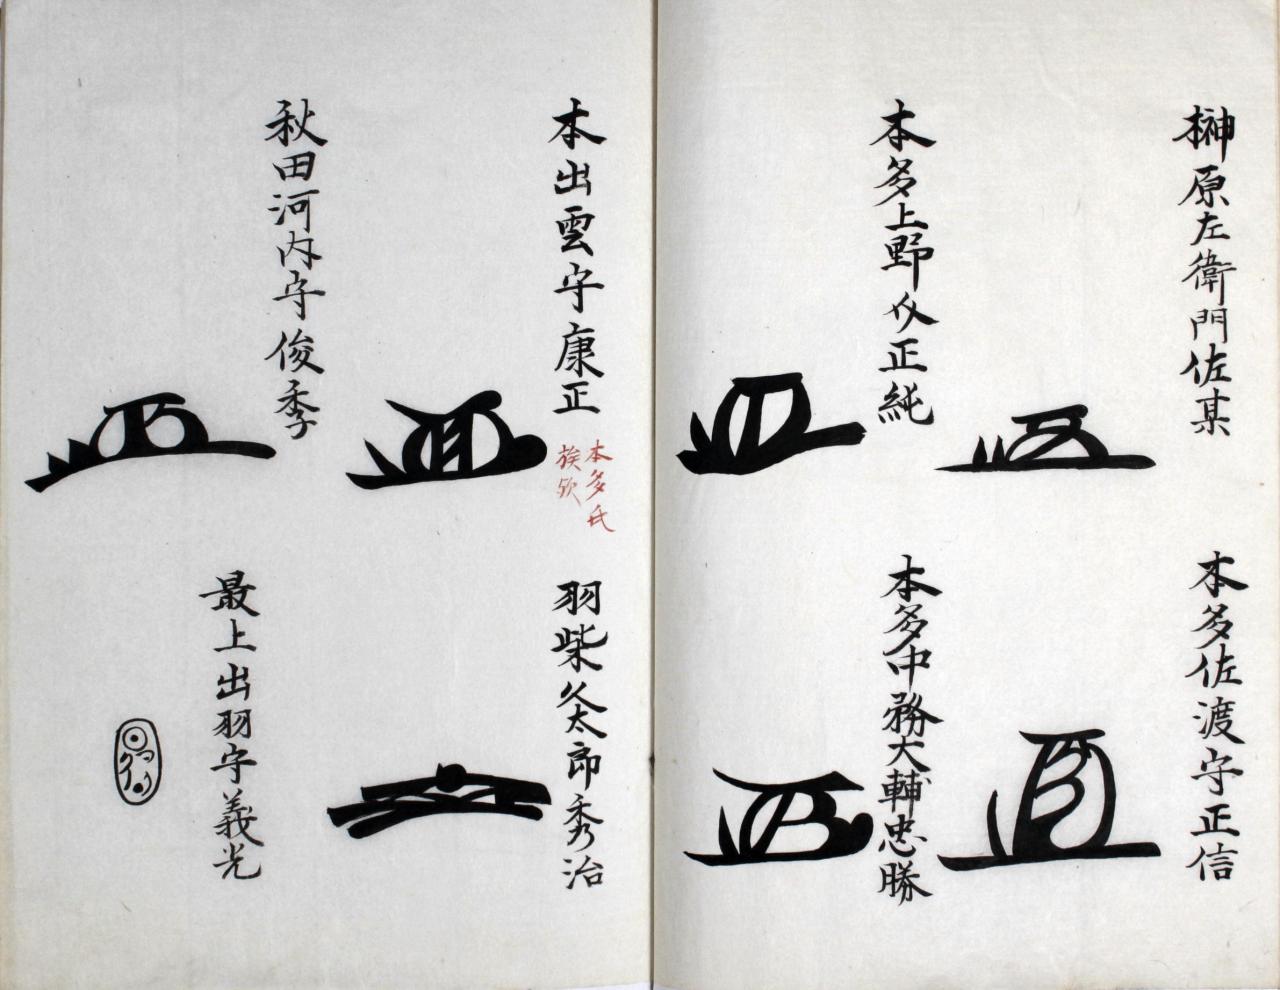 榊原左衛門佐某
本多佐渡守正信
本多上野介正純
本多中務大輔忠勝
本出雲守康正
本多氏
族欤
羽柴久太郎秀治
秋田河内守俊季
最上出羽守義光